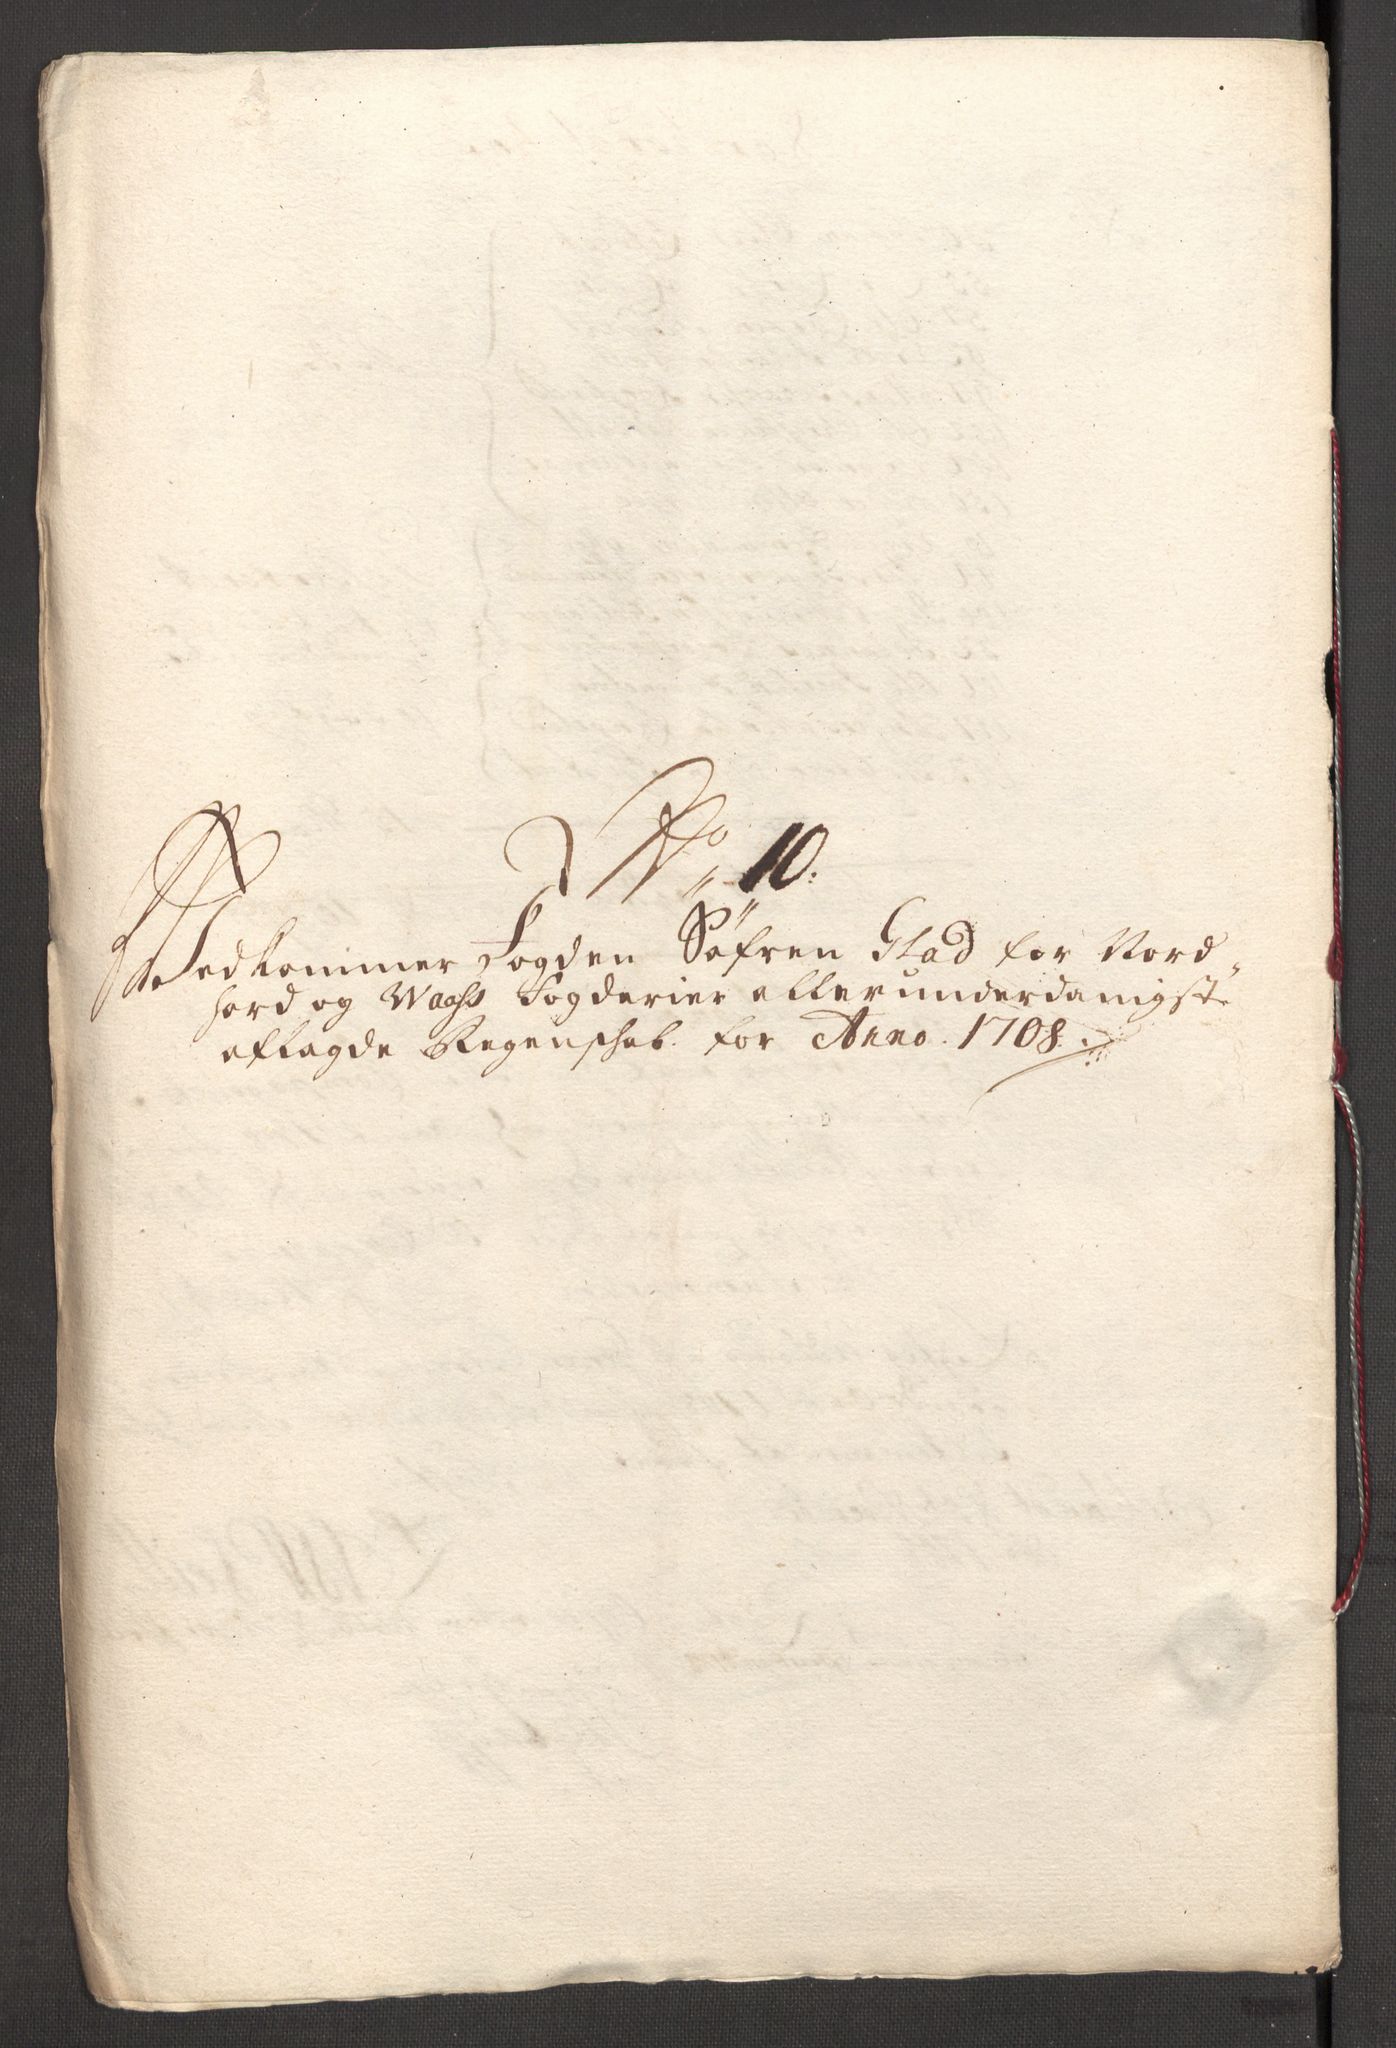 No 10:
Vedkommer Fogden Søfren Glad for Nord-
hord og Waass Fogderier allerunderdanigst
aflagde Regenschab for Anno 1708.